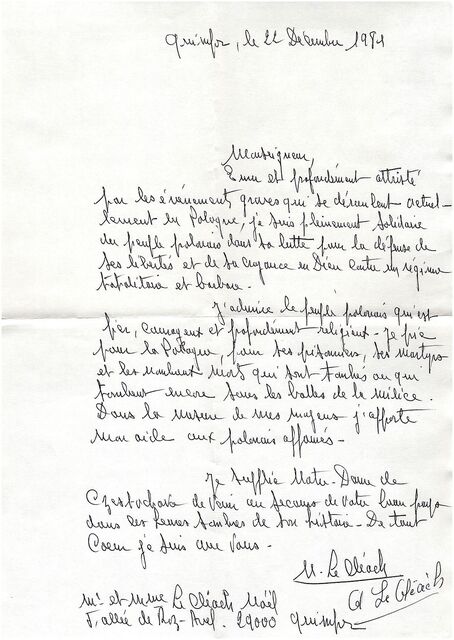 Quimper, le 22 Décembre 1981
Monseigneur,
Emu et profondément attristé
par les événements graves qui se déroulent actuel-
lement en Pologne, je suis pleinement solidaire
du peuple polonais dans sa lutte pour la défense de
ses libertés et de sa croyance en Dieu contre un régime
totalitaire et barbare.
J'admire le peuple polonais qui est
fier, courageux et profondément religieux - Je prie
pour la Pologne, pour ses prisonniers, ses martyrs
et les nombreux morts qui sont tombés ou qui
tombent encore sous les balles de la milice.
Dans la mesure de mes moyens j'apporte
mon aide aux polonais affamés -
Je supplie Notre-Dame de
Czestochova de venir au secours de votre beau pays
dans ces heures sombres de son histoire - De tout
Coeur je suis avec vous -
N. Le Cléach
Le Cléach
Mr et Mme Le Cléach Noël
29000 Quimper